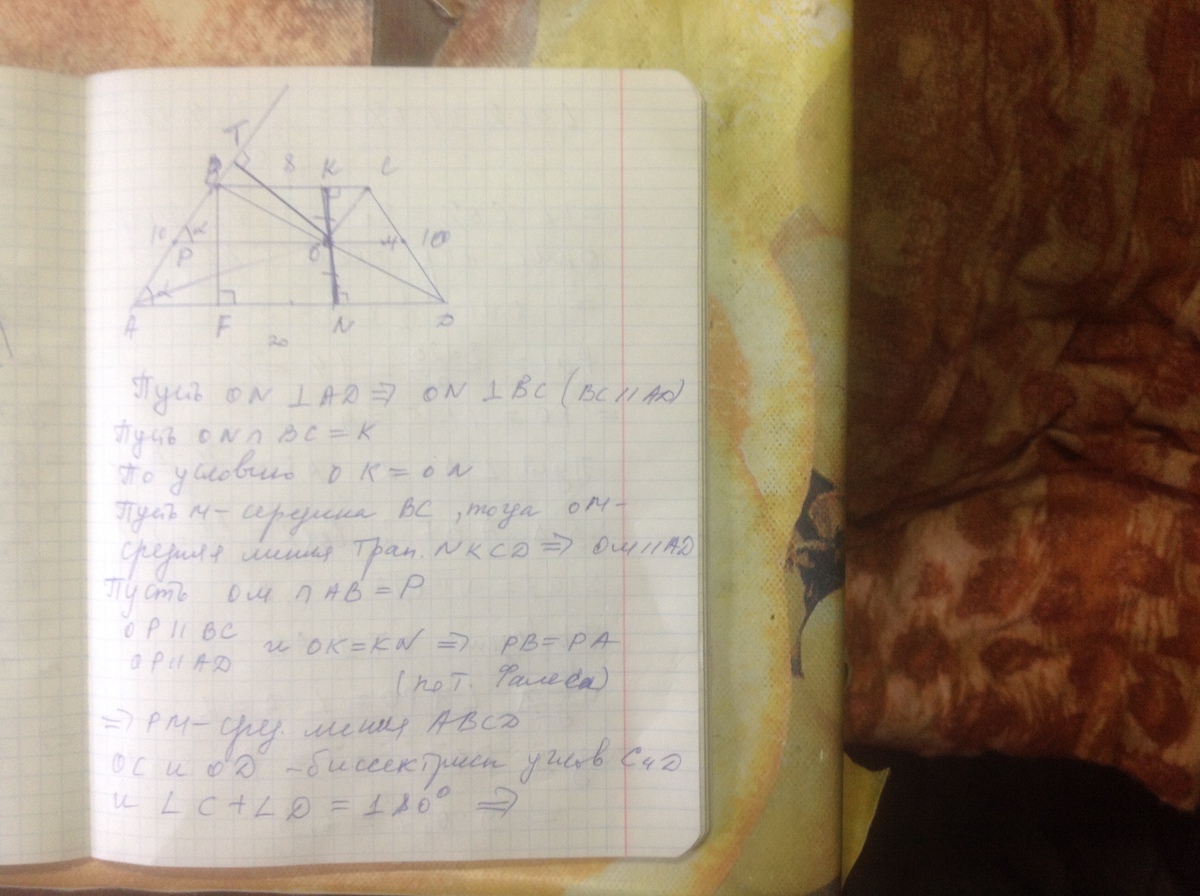 T
B 8 K C
10 α O M 10
P
A α F N D
20
Пусть ON ⊥ AD ⇒ ON ⊥ BC (BC || AD)
Пусть ON ∩ BC = K
По условию OK = ON
Пусть M - середина BC, тогда OM -
средняя линия трап. NKCD ⇒ OM || AD
Пусть OM ∩ AB = P
OP || BC
OP || AD и OK = KN ⇒ PB = PA
(по т. Фалеса)
⇒ PM - сред. линия ABCD
OC и OD - биссектрисы углов C и D
и ∠C + ∠D = 180° ⇒